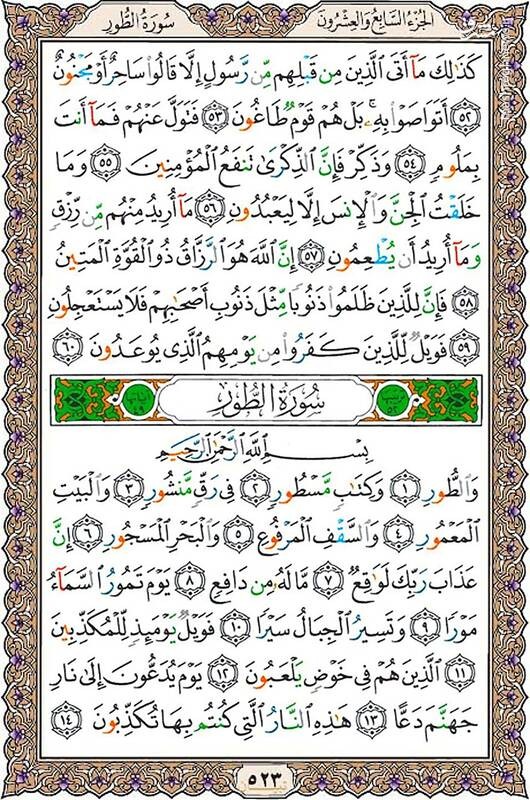 الجزء السابع والعشرون
سورة الطور
كَذَٰلِكَ مَآ أَتَى ٱلَّذِينَ مِن قَبۡلِهِم مِّن رَّسُولٍ إِلَّا قَالُواْ سَاحِرٌ أَوۡ مَجۡنُونٌ
٥٢ أَتَوَاصَوۡاْ بِهِۦۚ بَلۡ هُمۡ قَوۡمٞ طَاغُونَ ٥٣ فَتَوَلَّ عَنۡهُمۡ فَمَآ أَنتَ
بِمَلُومٖ ٥٤ وَذَكِّرۡ فَإِنَّ ٱلذِّكۡرَىٰ تَنفَعُ ٱلۡمُؤۡمِنِينَ ٥٥ وَمَا
خَلَقۡتُ ٱلۡجِنَّ وَٱلۡإِنسَ إِلَّا لِيَعۡبُدُونِ ٥٦ مَآ أُرِيدُ مِنۡهُم مِّن رِّزۡقٖ
وَمَآ أُرِيدُ أَن يُطۡعِمُونِ ٥٧ إِنَّ ٱللَّهَ هُوَ ٱلرَّزَّاقُ ذُو ٱلۡقُوَّةِ ٱلۡمَتِينُ
٥٨ فَإِنَّ لِلَّذِينَ ظَلَمُواْ ذَنُوبٗا مِّثۡلَ ذَنُوبِ أَصۡحَٰبِهِمۡ فَلَا يَسۡتَعۡجِلُونِ
٥٩ فَوَيۡلٞ لِّلَّذِينَ كَفَرُواْ مِن يَوۡمِهِمُ ٱلَّذِي يُوعَدُونَ ٦٠
ترتيبها ٥٢
سورة الطور
آياتها ٤٩
بِسۡمِ ٱللَّهِ ٱلرَّحۡمَٰنِ ٱلرَّحِيمِ
وَٱلطُّورِ ١ وَكِتَٰبٖ مَّسۡطُورٖ ٢ فِي رَقّٖ مَّنشُورٖ ٣ وَٱلۡبَيۡتِ
ٱلۡمَعۡمُورِ ٤ وَٱلسَّقۡفِ ٱلۡمَرۡفُوعِ ٥ وَٱلۡبَحۡرِ ٱلۡمَسۡجُورِ ٦ إِنَّ
عَذَابَ رَبِّكَ لَوَٰقِعٞ ٧ مَّا لَهُۥ مِن دَافِعٖ ٨ يَوۡمَ تَمُورُ ٱلسَّمَآءُ
مَوۡرٗا ٩ وَتَسِيرُ ٱلۡجِبَالُ سَيۡرٗا ١٠ فَوَيۡلٞ يَوۡمَئِذٖ لِّلۡمُكَذِّبِينَ
١١ ٱلَّذِينَ هُمۡ فِي خَوۡضٖ يَلۡعَبُونَ ١٢ يَوۡمَ يُدَعُّونَ إِلَىٰ نَارِ
جَهَنَّمَ دَعًّا ١٣ هَٰذِهِ ٱلنَّارُ ٱلَّتِي كُنتُم بِهَا تُكَذِّبُونَ ١٤
٥٢٣